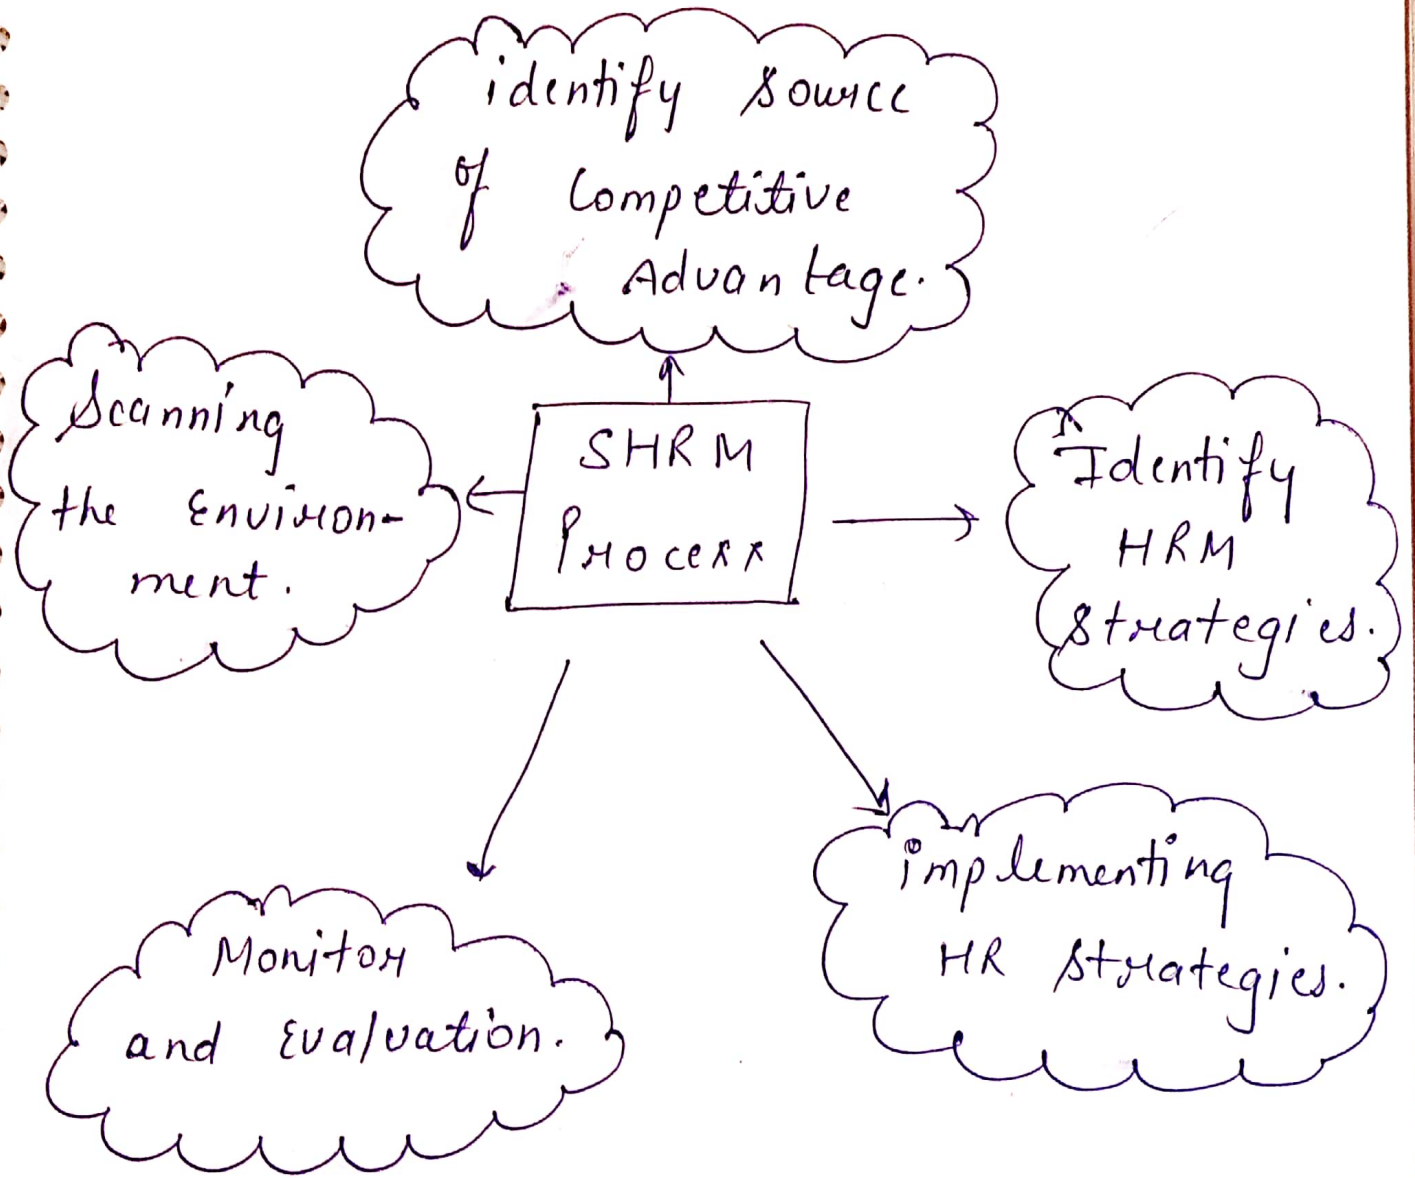 identify source
of Competitive
Advantage.
Scanning
the Environ-
ment.
SHRM
Process
Identify
HRM
strategies.
implementing
HR strategies.
Monitor
and Evaluation.